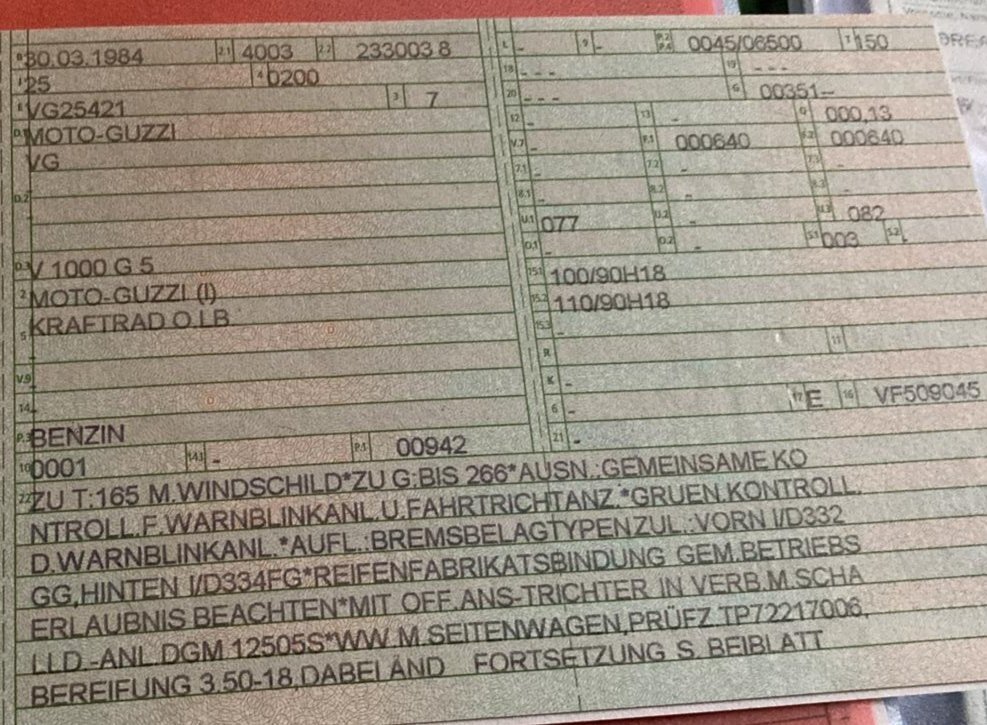 B 30.03.1984 2.1 4003 2.2 233003 8
J 25 4 0200
E VG25421 3 7
D.1 MOTO-GUZZI
VG
D.2
D.3 V 1000 G 5
2 MOTO-GUZZI (I)
5 KRAFTRAD O.LB
V.9
14 -
P.3 BENZIN
10 0001 14.1 - P.1 00942
L - 9 - P.2 P.4 0045/06500 T 150
18 - - - 19 - - -
20 - - - G 00351--
12 - 13 - Q 000,13
V.7 - F.1 000640 F.2 000640
7.1 - 7.2 - 7.3 -
8.1 - 8.2 - 8.3 -
U.1 077 U.2 - U.3 082
O.1 - O.2 - S.1 003 S.2
15.1 100/90H18
15.2 110/90H18
15.3 -
R 11
K -
6 - 17 E 16 VF509045
21 -
22 ZU T:165 M.WINDSCHILD*ZU G:BIS 266*AUSN.:GEMEINSAME KO
NTROLL.F.WARNBLINKANL.U.FAHRTRICHTANZ.*GRUEN.KONTROLL.
D.WARNBLINKANL.*AUFL.:BREMSBELAGTYPEN ZUL.:VORN I/D332
GG,HINTEN I/D334FG*REIFENFABRIKATSBINDUNG GEM.BETRIEBS
ERLAUBNIS BEACHTEN*MIT OFF.ANS-TRICHTER IN VERB.M.SCHA
LLD.-ANL.DGM 12505S*WW.M.SEITENWAGEN,PRÜFZ.TP72217006,
BEREIFUNG 3.50-18,DABEI ÄND FORTSETZUNG S. BEIBLATT